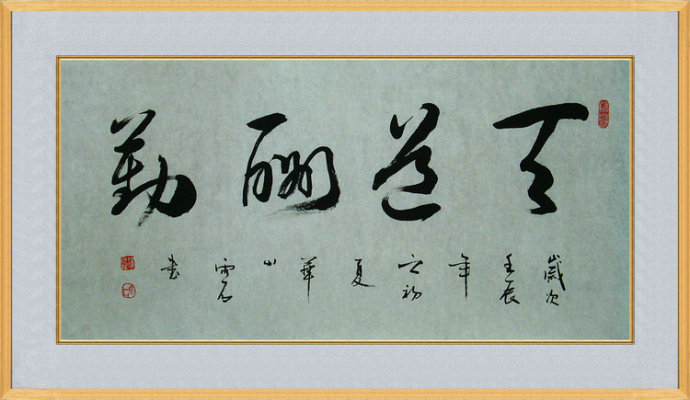 天道酬勤
歲次壬辰年之初夏華山雪石書